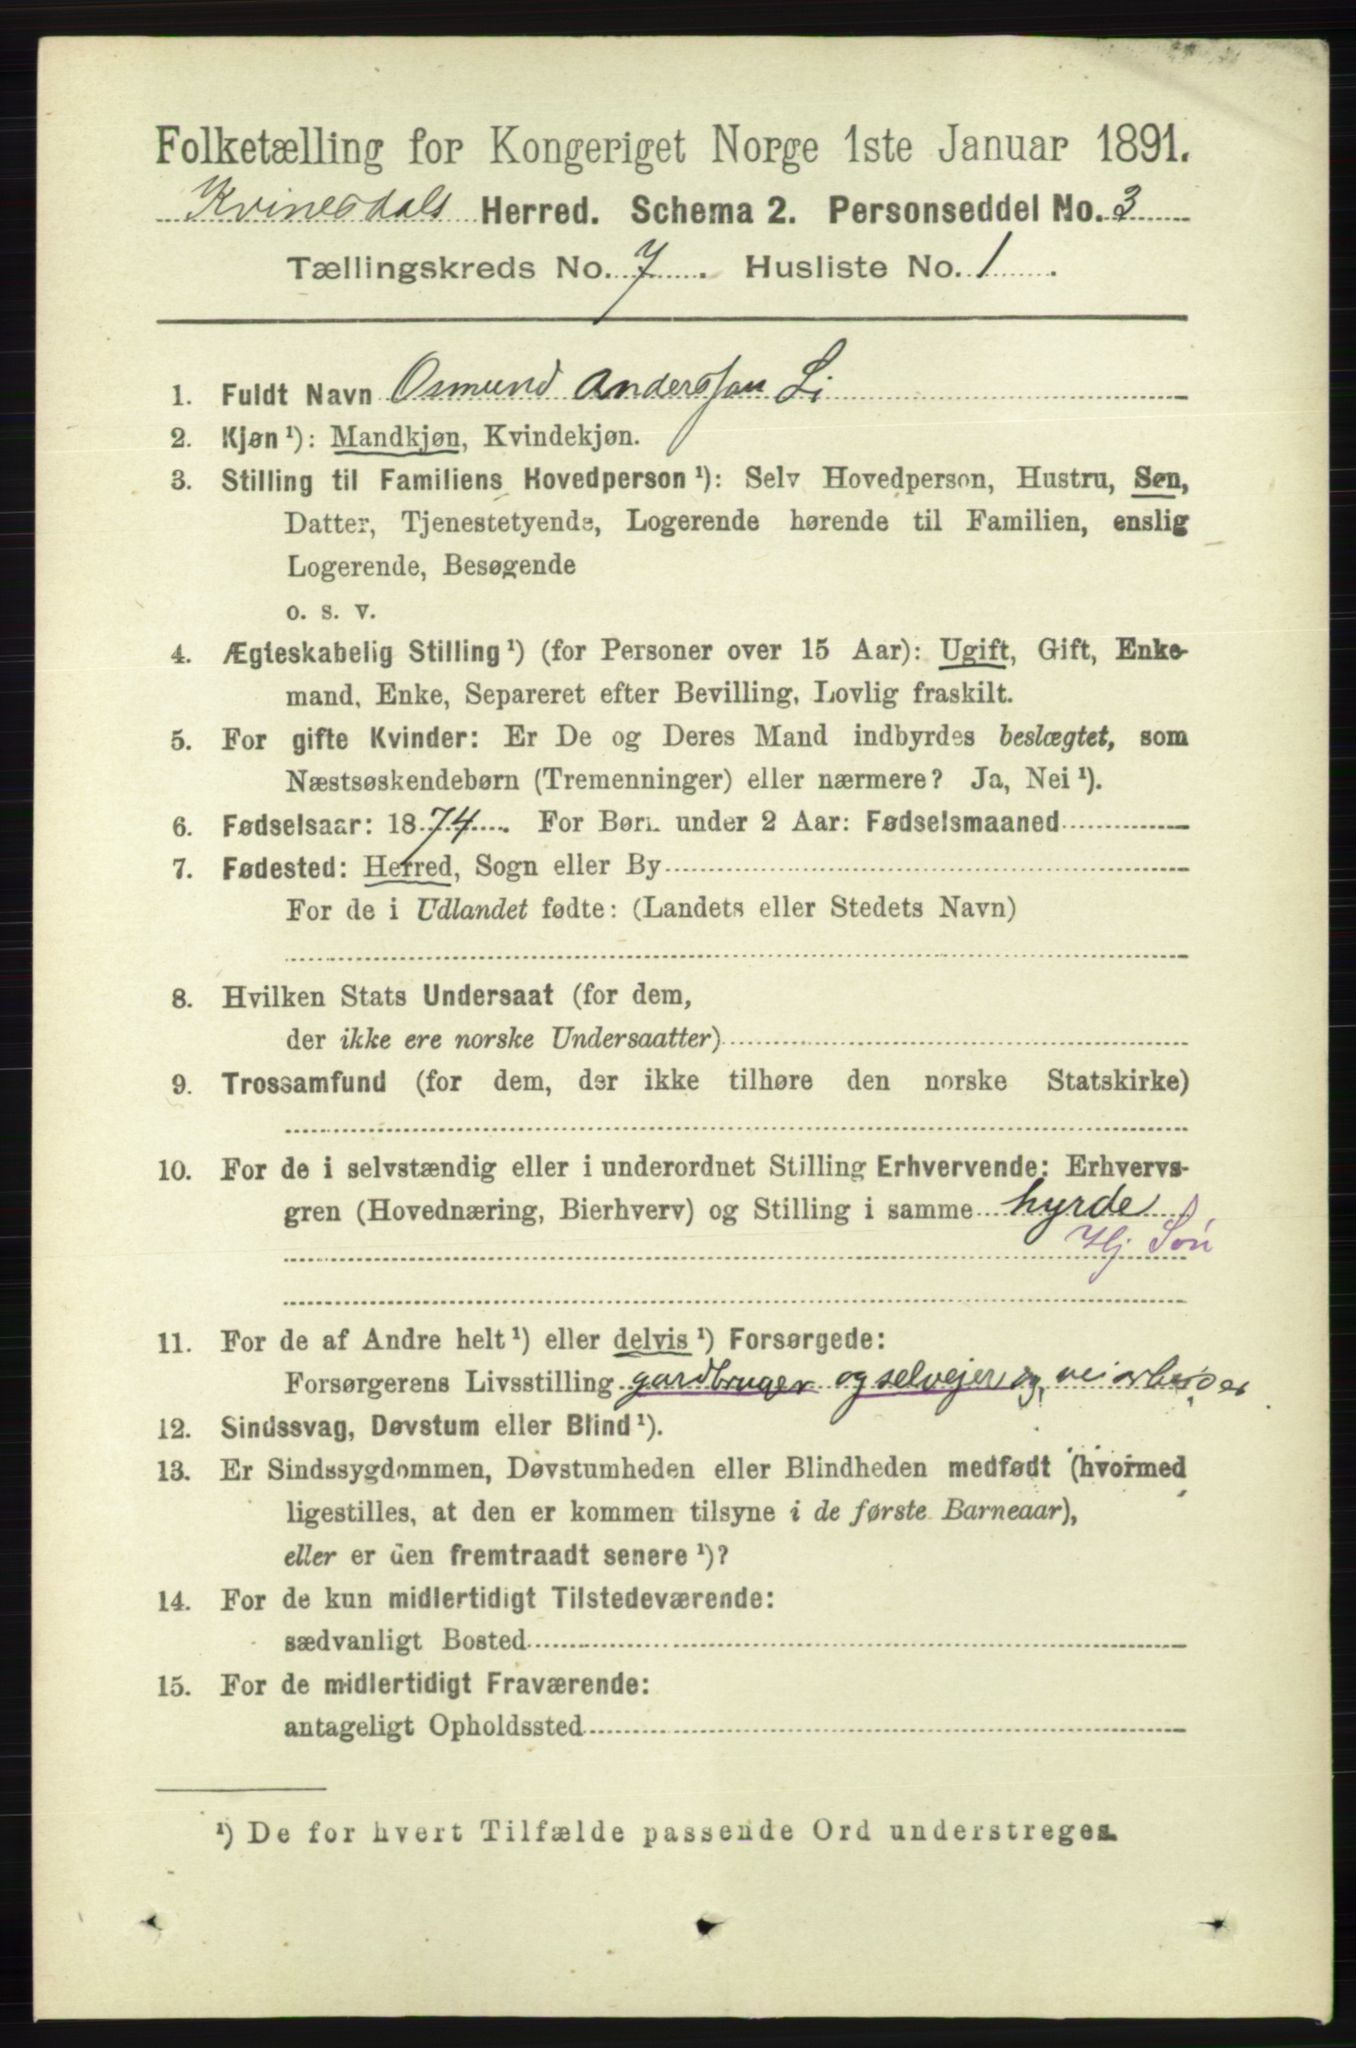 Folketælling for Kongeriget Norge 1ste Januar 1891.
Kvinesdals Herred. Schema 2. Personseddel No. 3
Tællingskreds No. 7. Husliste No. 1.
1. Fuldt Navn Osmund Anderssøn Li
2. Kjøn ¹): Mandkjøn, Kvindekjøn.
3. Stilling til Familiens Hovedperson ¹): Selv Hovedperson, Hustru, Søn,
Datter, Tjenestetyende, Logerende hørende til Familien, enslig
Logerende, Besøgende
o. s. v.
4. Ægteskabelig Stilling ¹) (for Personer over 15 Aar): Ugift, Gift, Enke-
mand, Enke, Separeret efter Bevilling, Lovlig fraskilt.
5. For gifte Kvinder: Er De og Deres Mand indbyrdes beslægtet, som
Næstsøskendebørn (Tremenninger) eller nærmere? Ja, Nei ¹).
6. Fødselsaar: 1874. For Børn under 2 Aar: Fødselsmaaned
7. Fødested: Herred, Sogn eller By
For de i Udlandet fødte: (Landets eller Stedets Navn)
8. Hvilken Stats Undersaat (for dem,
der ikke ere norske Undersaatter)
9. Trossamfund (for dem, der ikke tilhøre den norske Statskirke)
10. For de i selvstændig eller i underordnet Stilling Erhvervende: Erhvervs-
gren (Hovednæring, Bierhverv) og Stilling i samme hyrde
Hj Søn
11. For de af Andre helt ¹) eller delvis ¹) Forsørgede:
Forsørgerens Livsstilling gardbruger og selvejer og veiarbeider
12. Sindssvag, Døvstum eller Blind ¹).
13. Er Sindssygdommen, Døvstumheden eller Blindheden medfødt (hvormed
ligestilles, at den er kommen tilsyne i de første Barneaar),
eller er den fremtraadt senere ¹)?
14. For de kun midlertidigt Tilstedeværende:
sædvanligt Bosted
15. For de midlertidigt Fraværende:
antageligt Opholdssted
¹) De for hvert Tilfælde passende Ord understreges.